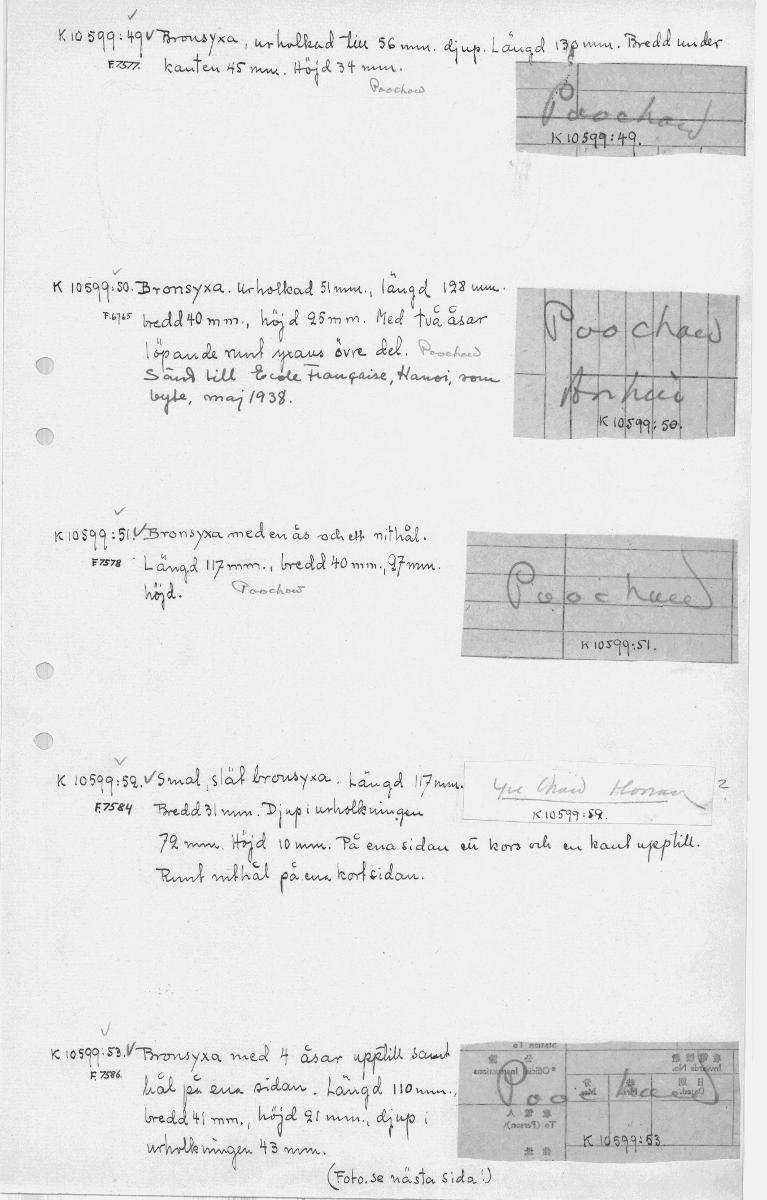 K 10599:49 Bronsyxa, urholkad till 56 mm. djup. Längd 130 mm. Bredd under
F.7577. kanten 45 mm. Höjd 34 mm.
Poochow
Poochow
K 10599:49.
K 10599:50. Bronsyxa. Urholkad 51 mm., längd 128 mm.
F.6765 bredd 40 mm., höjd 25 mm. Med två åsar
löpande runt yxans övre del. Poochow
Sänd till Ecole Française, Hanoi, som
byte, maj 1938.
Poochow
Anhui
K 10599:50.
K 10599:51. Bronsyxa med en ås och ett nithål.
F.7578 Längd 117 mm., bredd 40 mm., 27 mm.
höjd. Poochow
Poochow
K 10599:51.
K 10599:52. Smal, slät bronsyxa. Längd 117 mm.
F.7584 Bredd 31 mm. Djup i urholkningen
72 mm. Höjd 10 mm. På ena sidan ett kors och en kant upptill.
Runt nithål på ena kortsidan.
Yu Chow Honan
?
K 10599:52.
K 10599:53. Bronsyxa med 4 åsar upptill samt
F.7586. hål på ena sidan. Längd 110 mm.,
bredd 41 mm., höjd 21 mm., djup i
urholkningen 43 mm.
(Foto. se nästa sida!)
Station To
Official Instructions
Inwards No.
Poochow
To (Person)
K 10599:53